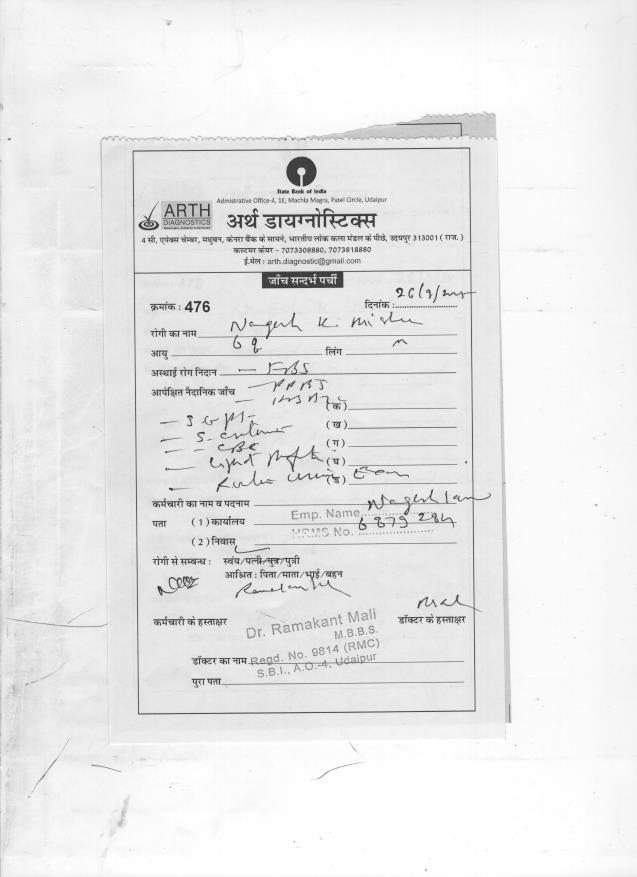 State Bank of India
Admistrative Office-4, 1E, Machla Magra, Patel Circle, Udaipur
ARTH
DIAGNOSTICS
अर्थ डायग्नोस्टिक्स
4 सी, एपेक्स चेम्बर, मधुबन, केनरा बैंक के सामने, भारतीय लोक कला मंडल के पीछे, उदयपुर 313001 ( राज. )
कस्टमर केयर - 7073308880, 7073818880
ई.मेल : arth.diagnostic@gmail.com
जाँच सन्दर्भ पर्ची
क्रमांक : 476 दिनांक :
रोगी का नाम Nagesh K. Mishra
आयु लिंग M
अस्थाई रोग निदान - FBS
आपेक्षित नैदानिक जाँच - PPBS
(क)
- SGPT (ख)
- S. Creatinine
- CBC (ग)
- Lipid Profile (घ)
- Routine Urine Exam (ड)
कर्मचारी का नाम व पदनाम Nagesh
पता ( 1 ) कार्यालय Emp. Name
HRMS No. 6879284
( 2 ) निवास
रोगी से सम्बन्ध : स्वंय/पत्नी/पुत्र/पुत्री
आश्रित : पिता/माता/भाई/बहन
कर्मचारी के हस्ताक्षर डॉक्टर के हस्ताक्षर
Dr. Ramakant Mali
M.B.B.S.
डॉक्टर का नाम Regd. No. 9814 (RMC)
S.B.I., A.O.-4, Udaipur
पुरा पता